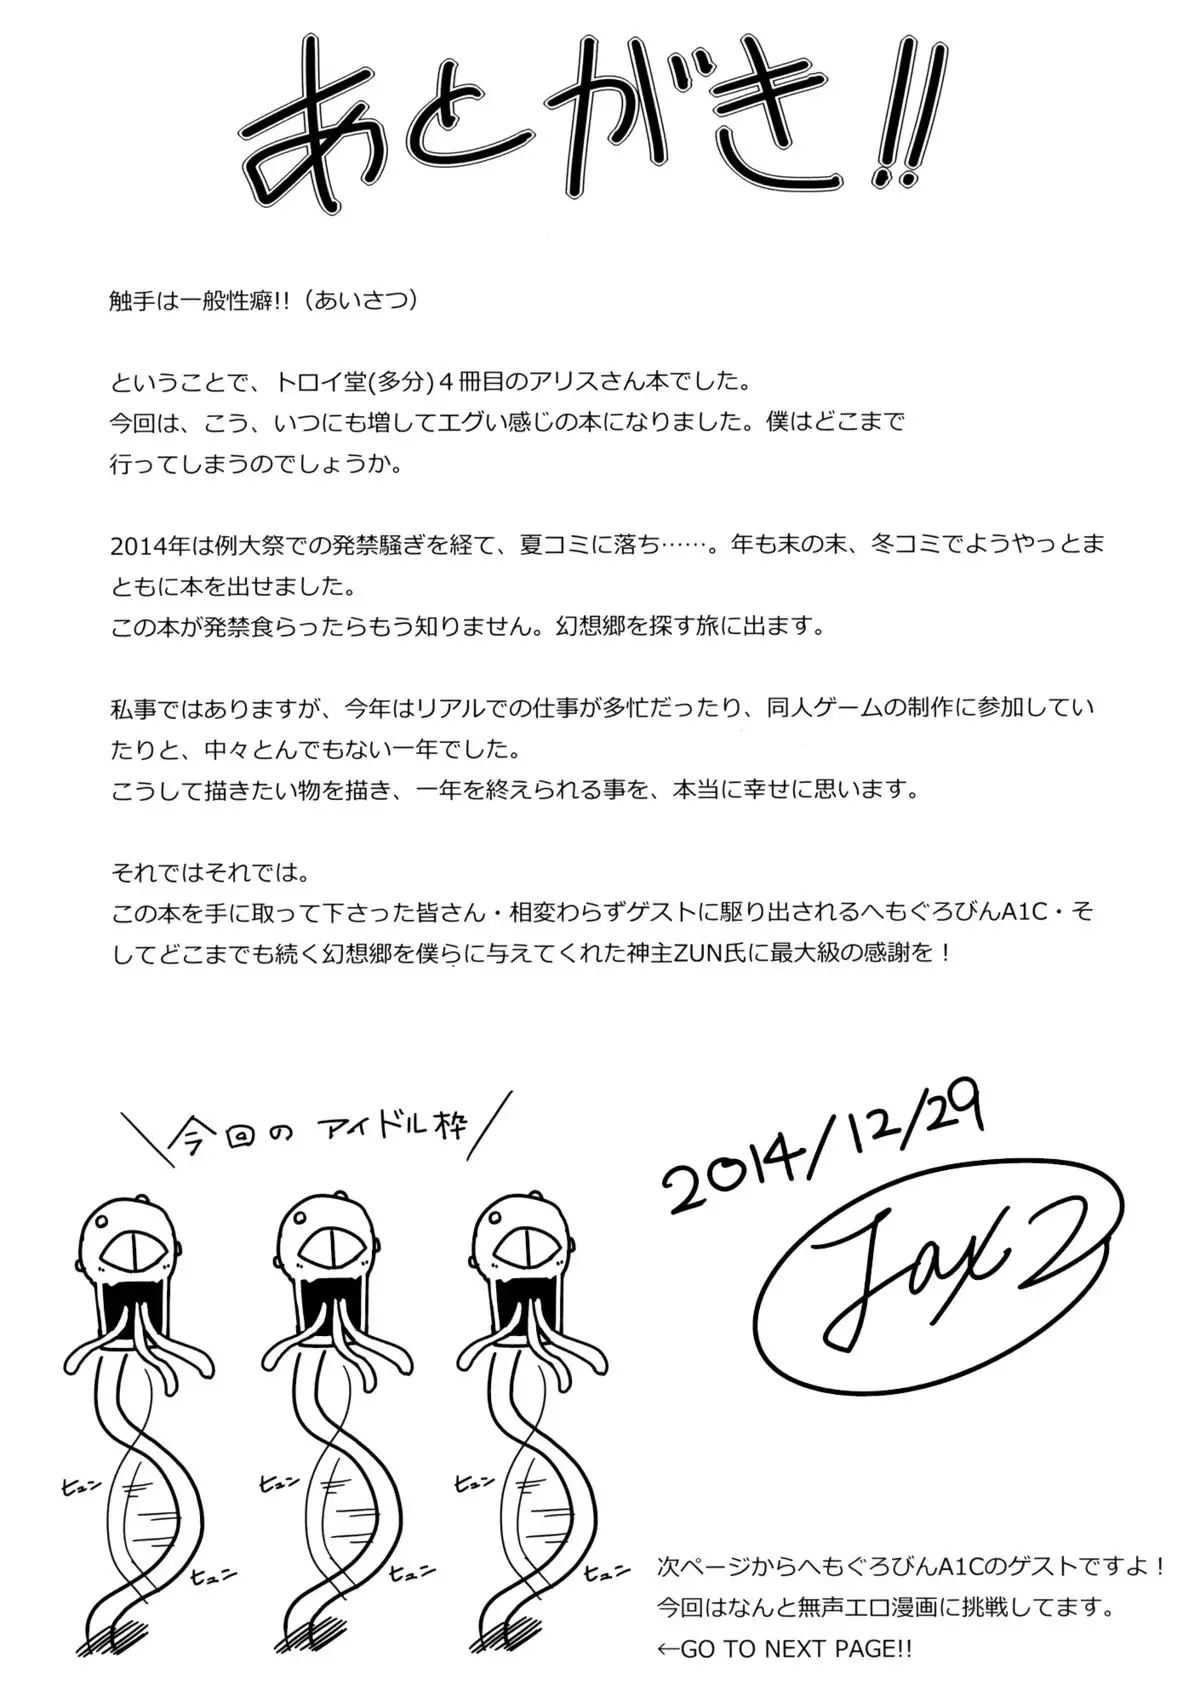 あとがき!!
触手は一般性癖!!（あいさつ）
ということで、トロイ堂(多分)４冊目のアリスさん本でした。
今回は、こう、いつにも増してエグい感じの本になりました。僕はどこまで
行ってしまうのでしょうか。
2014年は例大祭での発禁騒ぎを経て、夏コミに落ち……。年も末の末、冬コミでようやっとま
ともに本を出せました。
この本が発禁食らったらもう知りません。幻想郷を探す旅に出ます。
私事ではありますが、今年はリアルでの仕事が多忙だったり、同人ゲームの制作に参加してい
たりと、中々とんでもない一年でした。
こうして描きたい物を描き、一年を終えられる事を、本当に幸せに思います。
それではそれでは。
この本を手に取って下さった皆さん・相変わらずゲストに駆り出されるへもぐろびんA1C・そ
してどこまでも続く幻想郷を僕らに与えてくれた神主ZUN氏に最大級の感謝を！
今回のアイドル枠
2014/12/29
Jax2
ヒュン
ヒュン
ヒュン
ヒュン
ヒュン
ヒュン
次ページからへもぐろびんA1Cのゲストですよ！
今回はなんと無声エロ漫画に挑戦してます。
←GO TO NEXT PAGE!!